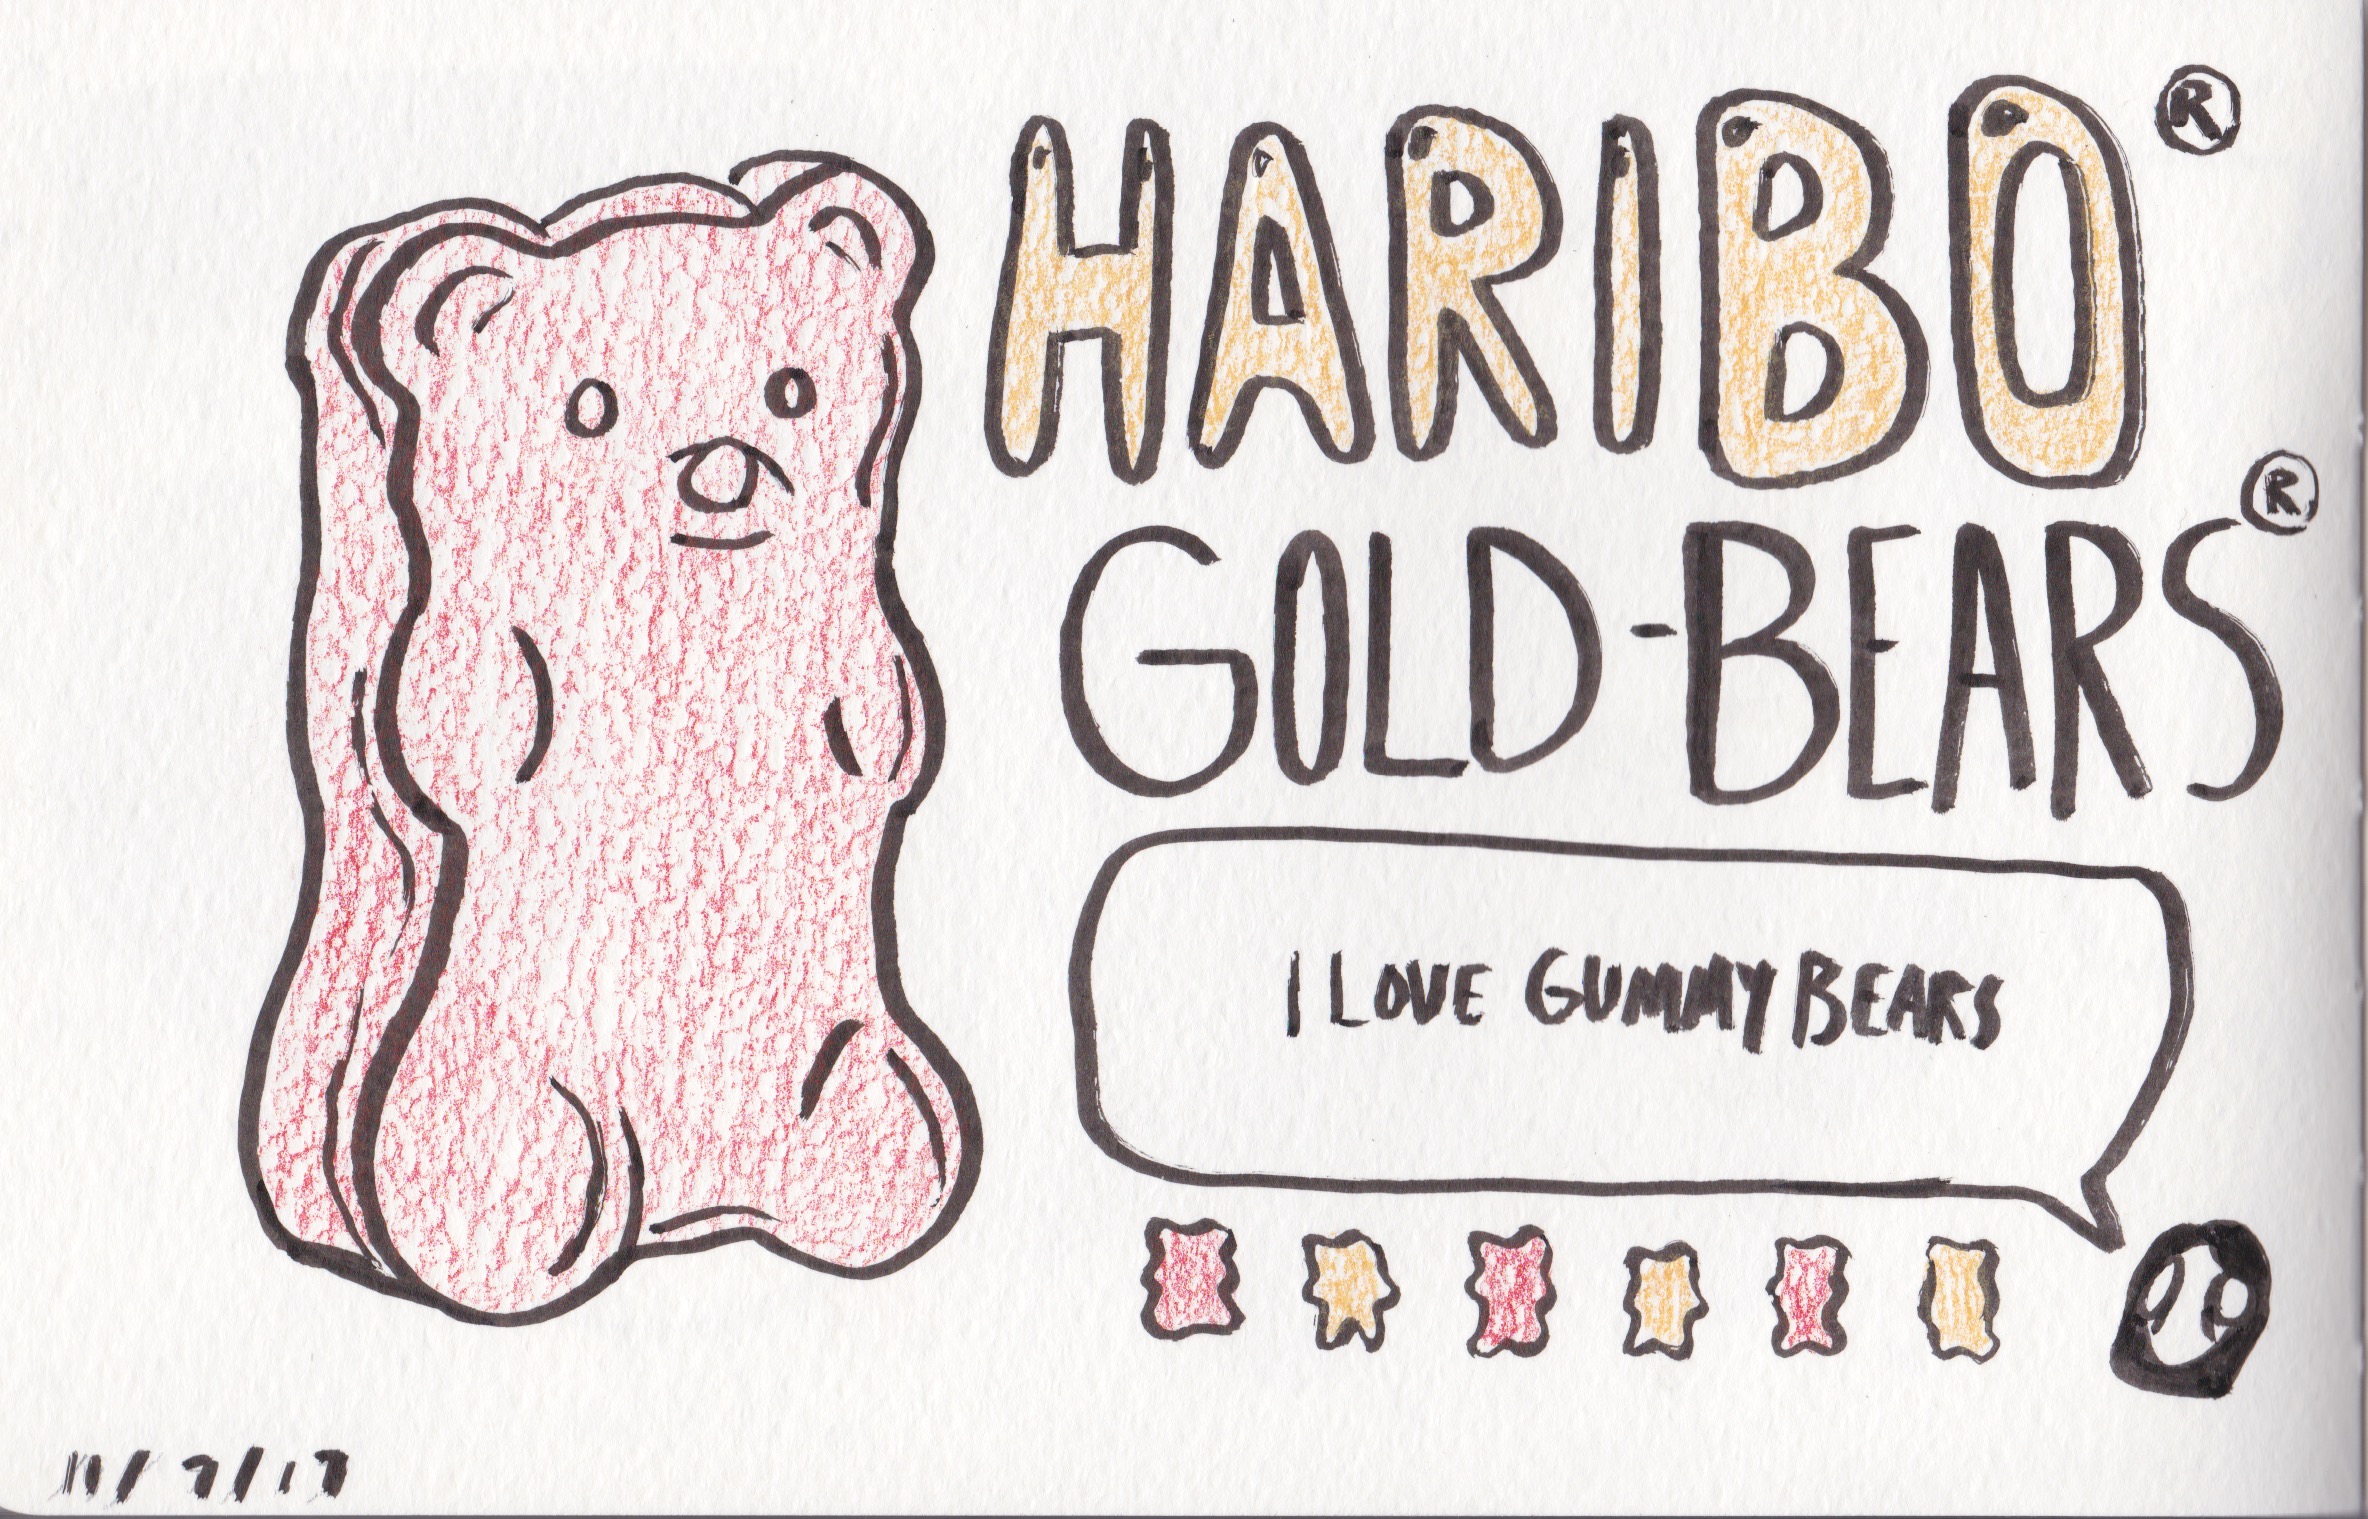 HARIBO®
GOLD-BEARS®
I LOVE GUMMY BEARS
11/7/17